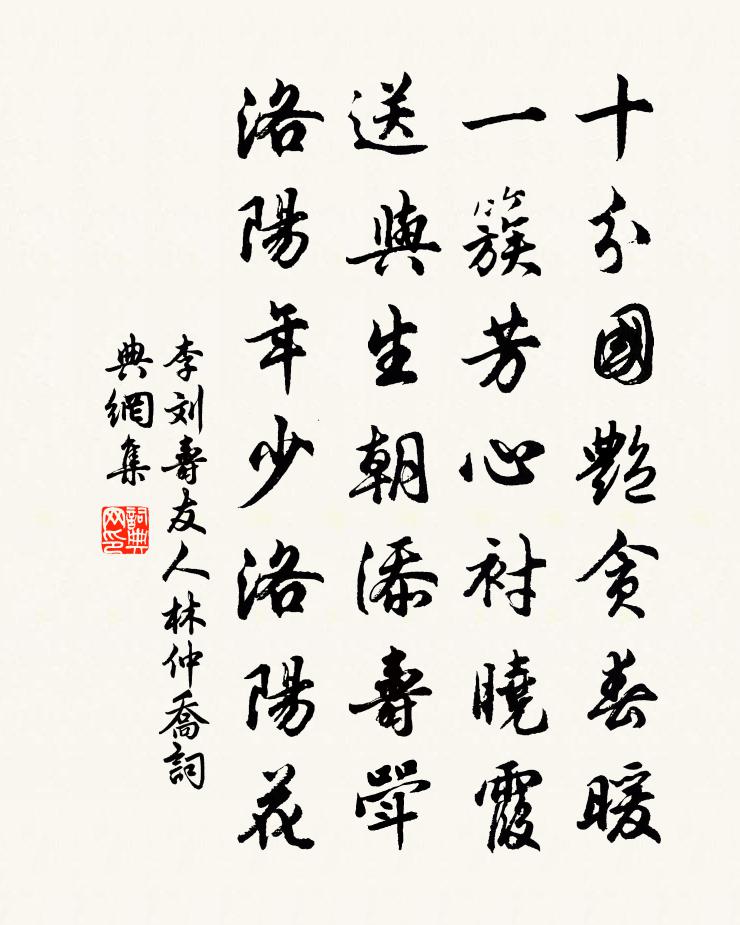 十分國艷貪春暖
一簇芳心衬曉霞
送與生朝添壽斝
洛陽年少洛陽花
李刘壽友人林仲喬詞
典網集
詞典
网印